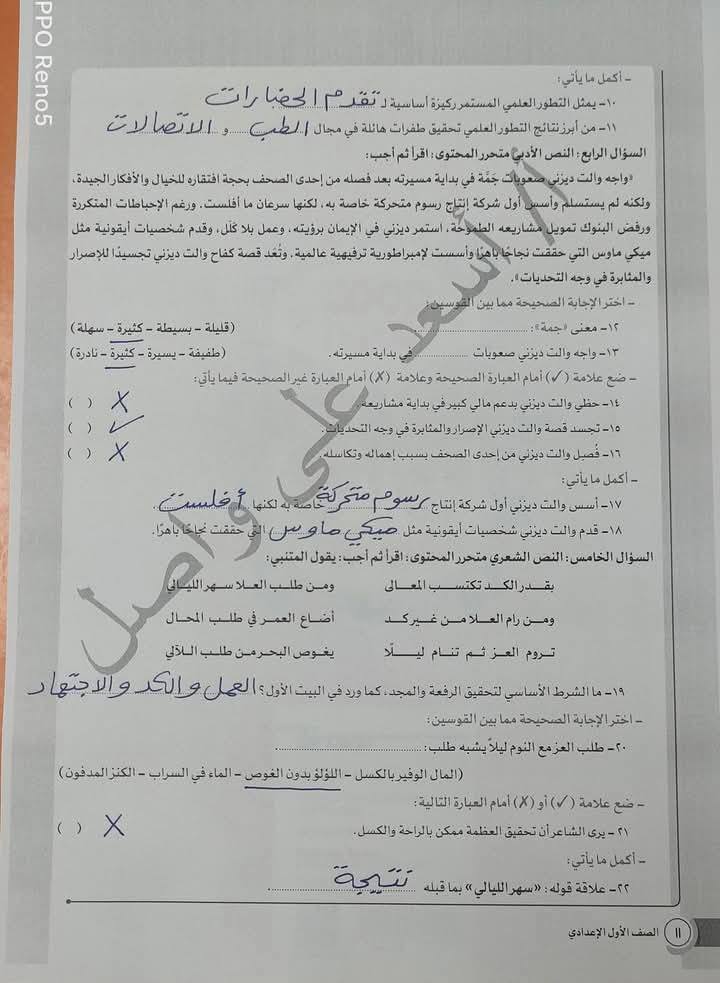 PPO Reno5
- أكمل ما يأتي:
١٠- يمثل التطور العلمي المستمر ركيزة أساسية لـ تقدم الحضارات
١١- من أبرز نتائج التطور العلمي تحقيق طفرات هائلة في مجال الطب و الاتصالات
السؤال الرابع: النص الأدبي متحرر المحتوى: اقرأ ثم أجب:
«واجه والت ديزني صعوبات جَمَّة في بداية مسيرته بعد فصله من إحدى الصحف بحجة افتقاره للخيال والأفكار الجيدة،
ولكنه لم يستسلم وأسس أول شركة إنتاج رسوم متحركة خاصة به، لكنها سرعان ما أفلست. ورغم الإحباطات المتكررة
ورفض البنوك تمويل مشاريعه الطموحة، استمر ديزني في الإيمان برؤيته، وعمل بلا كَلَل، وقدم شخصيات أيقونية مثل
ميكي ماوس التي حققت نجاحًا باهرًا وأسست لإمبراطورية ترفيهية عالمية. وتُعَد قصة كفاح والت ديزني تجسيدًا للإصرار
والمثابرة في وجه التحديات».
- اختر الإجابة الصحيحة مما بين القوسين:
١٢- معنى «جمة»: (قليلة - بسيطة - كثيرة - سهلة)
١٣- واجه والت ديزني صعوبات في بداية مسيرته. (طفيفة - يسيرة - كثيرة - نادرة)
- ضع علامة (✓) أمام العبارة الصحيحة وعلامة (✗) أمام العبارة غير الصحيحة فيما يأتي:
١٤- حظي والت ديزني بدعم مالي كبير في بداية مشاريعه. ✗ ( )
١٥- تجسد قصة والت ديزني الإصرار والمثابرة في وجه التحديات. ✓ ( )
١٦- فُصِل والت ديزني من إحدى الصحف بسبب إهماله وتكاسله. ✗ ( )
- أكمل ما يأتي:
١٧- أسس والت ديزني أول شركة إنتاج رسوم متحركة خاصة به لكنها أفلست.
١٨- قدم والت ديزني شخصيات أيقونية مثل ميكي ماوس التي حققت نجاحًا باهرًا.
السؤال الخامس: النص الشعري متحرر المحتوى: اقرأ ثم أجب: يقول المتنبي:
بقدر الكد تكتسب المعالى ومن طلب العلا سهر الليالي
ومن رام العلا من غير كد أضاع العمر في طلب المحال
تروم العز ثم تنام ليلًا يغوص البحر من طلب اللآلي
١٩- ما الشرط الأساسي لتحقيق الرفعة والمجد، كما ورد في البيت الأول؟ العمل والكد والاجتهاد
- اختر الإجابة الصحيحة مما بين القوسين:
٢٠- طلب العز مع النوم ليلاً يشبه طلب:
(المال الوفير بالكسل - اللؤلؤ بدون الغوص - الماء في السراب - الكنز المدفون)
- ضع علامة (✓) أو (✗) أمام العبارة التالية:
٢١- يرى الشاعر أن تحقيق العظمة ممكن بالراحة والكسل. ✗ ( )
- أكمل ما يأتي:
٢٢- علاقة قوله: «سهر الليالي» بما قبله نتيجة
أ/ أسعد علي واصل
١١ الصف الأول الإعدادي